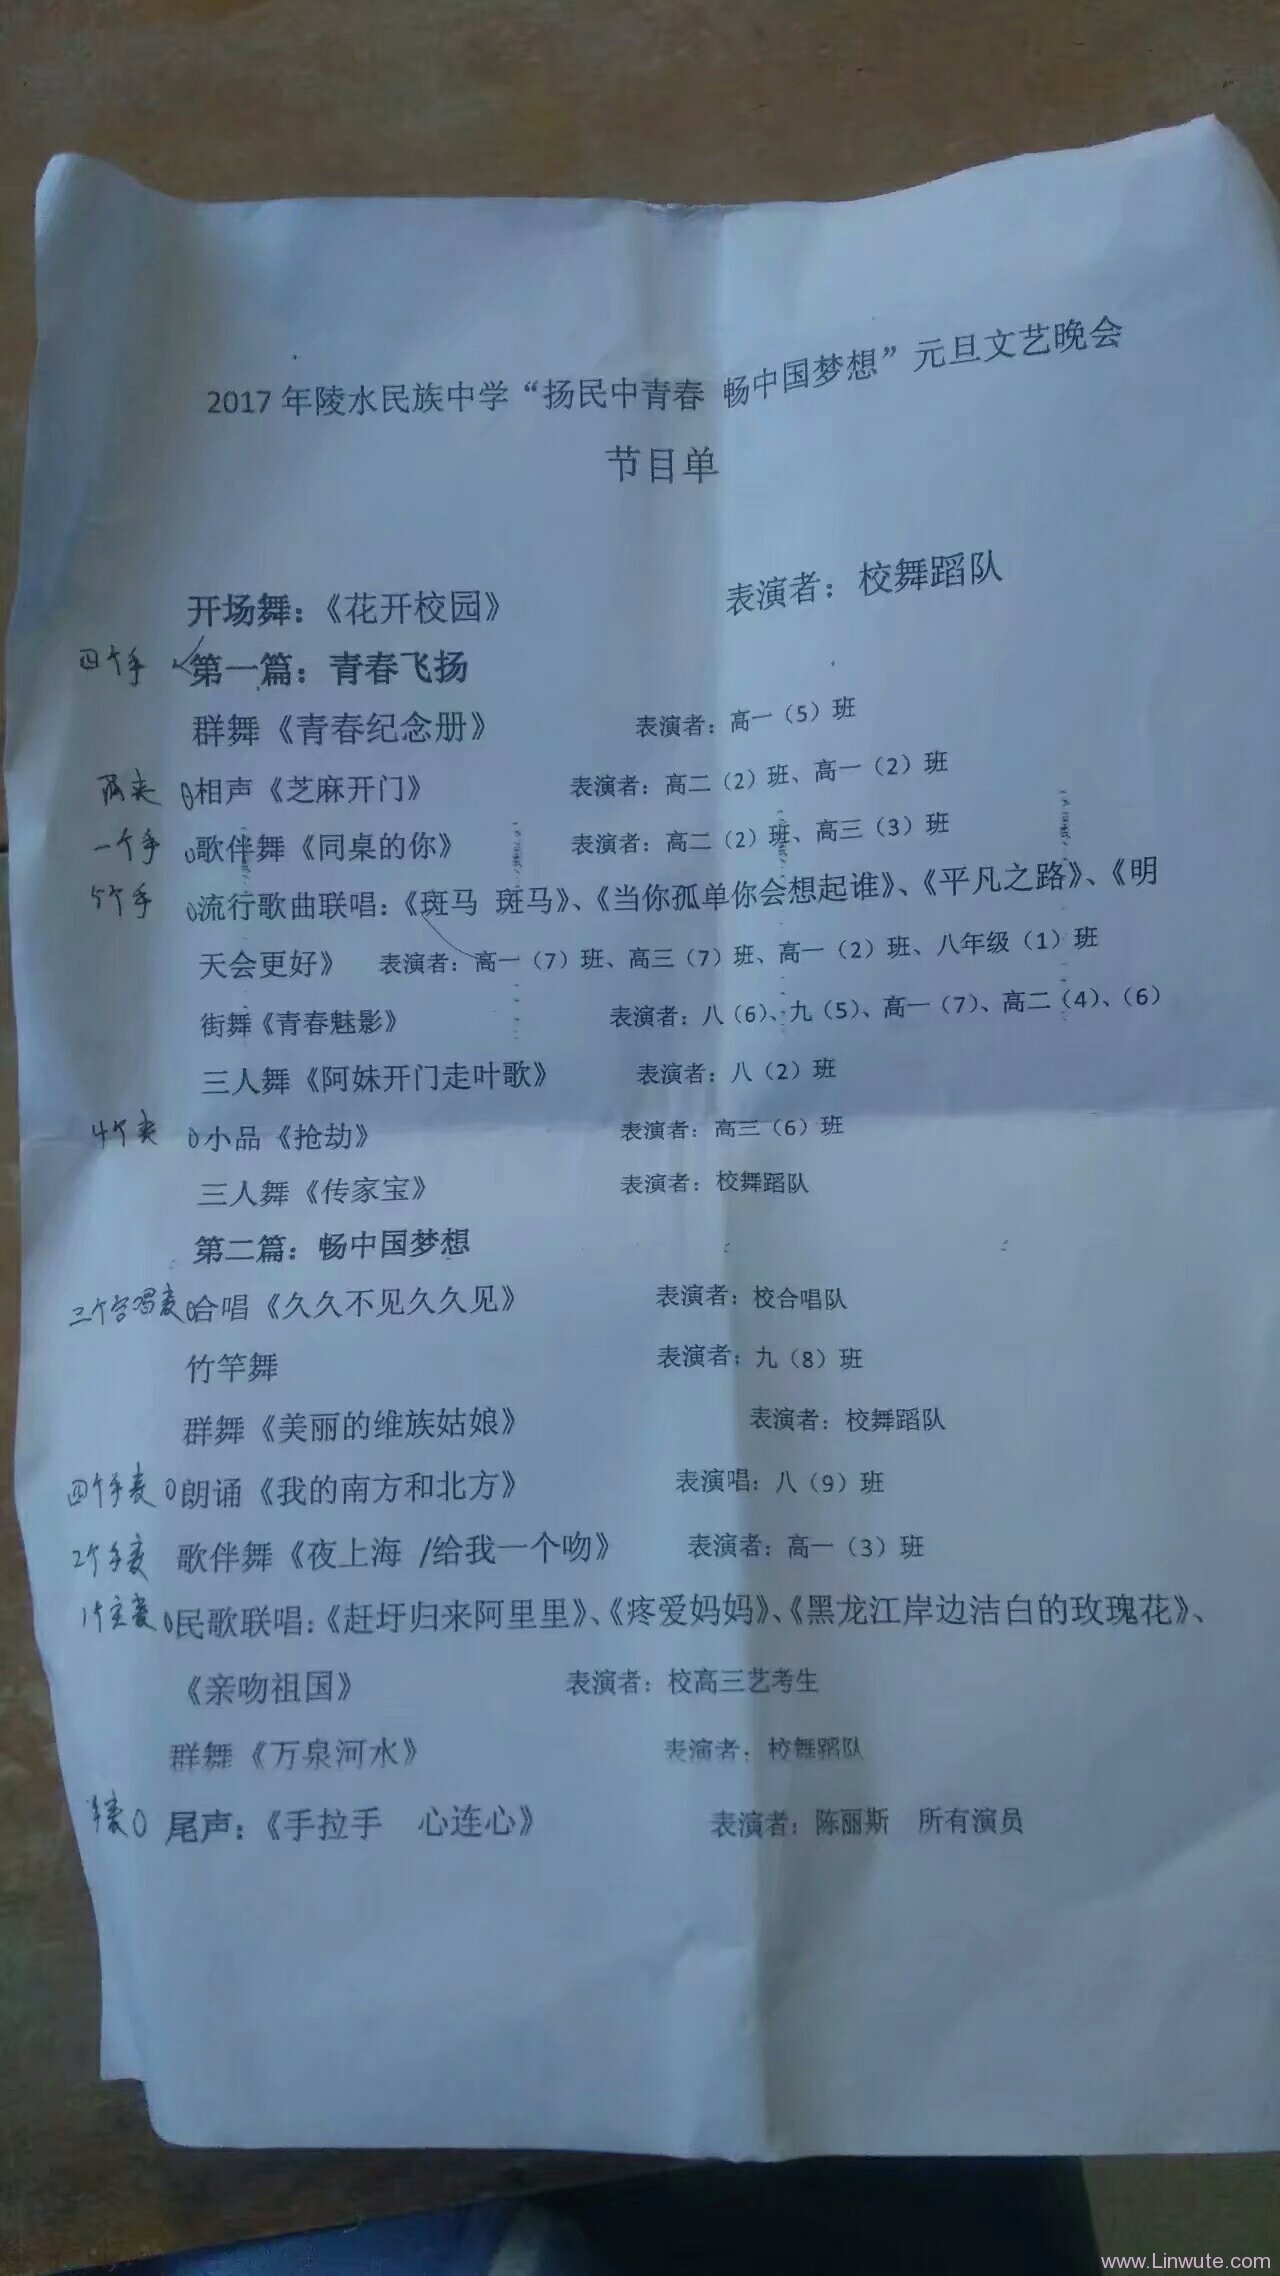 2017年陵水民族中学“扬民中青春 畅中国梦想”元旦文艺晚会
节目单
开场舞：《花开校园》 表演者：校舞蹈队
四个手 第一篇：青春飞扬
群舞《青春纪念册》 表演者：高一（5）班
两夹 相声《芝麻开门》 表演者：高二（2）班、高一（2）班
一个手 歌伴舞《同桌的你》 表演者：高二（2）班、高三（3）班
5个手 流行歌曲联唱：《斑马 斑马》、《当你孤单你会想起谁》、《平凡之路》、《明
天会更好》 表演者：高一（7）班、高三（7）班、高一（2）班、八年级（1）班
街舞《青春魅影》 表演者：八（6）、九（5）、高一（7）、高二（4）、（6）
三人舞《阿妹开门走叶歌》 表演者：八（2）班
4个夹 小品《抢劫》 表演者：高三（6）班
三人舞《传家宝》 表演者：校舞蹈队
第二篇：畅中国梦想
三个合唱麦 合唱《久久不见久久见》 表演者：校合唱队
竹竿舞 表演者：九（8）班
群舞《美丽的维族姑娘》 表演者：校舞蹈队
四个手麦 朗诵《我的南方和北方》 表演唱：八（9）班
2个手麦 歌伴舞《夜上海 /给我一个吻》 表演者：高一（3）班
1个主麦 民歌联唱：《赶圩归来阿里里》、《疼爱妈妈》、《黑龙江岸边洁白的玫瑰花》、
《亲吻祖国》 表演者：校高三艺考生
群舞《万泉河水》 表演者：校舞蹈队
手麦 尾声：《手拉手 心连心》 表演者：陈丽斯 所有演员
www.Linwute.com